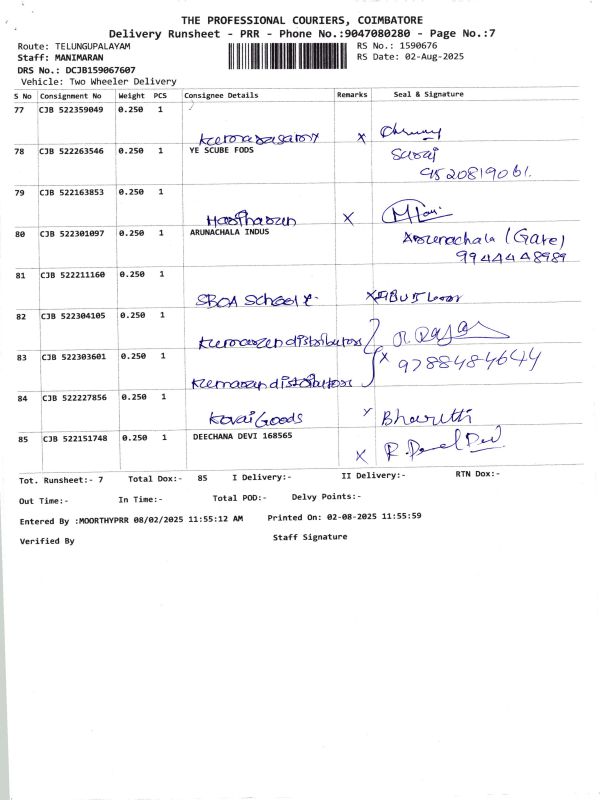 THE PROFESSIONAL COURIERS, COIMBATORE
Delivery Runsheet - PRR - Phone No.:9047080280 - Page No.:7
Route: TELUNGUPALAYAM
RS No.: 1590676
Staff: MANIMARAN
RS Date: 02-Aug-2025
DRS No.: DCJB159067607
Vehicle: Two Wheeler Delivery
S No Consignment No Weight PCS Consignee Details Remarks Seal & Signature
77 CJB 522359049 0.250 1
x
78 CJB 522263546 0.250 1 YE SCUBE FODS
Suraj
9520819061.
79 CJB 522163853 0.250 1
x
80 CJB 522301097 0.250 1 ARUNACHALA INDUS
Arunachala (Gate)
9944448989
81 CJB 522211160 0.250 1
SBOA School
82 CJB 522304105 0.250 1
Kumaran distributors
83 CJB 522303601 0.250 1
x 9788484644
Kumaran distributors
84 CJB 522227856 0.250 1
Kovai Goods x Bharathi
85 CJB 522151748 0.250 1 DEECHANA DEVI 168565
x
Tot. Runsheet:- 7 Total Dox:- 85 I Delivery:- II Delivery:- RTN Dox:-
Out Time:- In Time:- Total POD:- Delvy Points:-
Entered By :MOORTHYPRR 08/02/2025 11:55:12 AM Printed On: 02-08-2025 11:55:59
Verified By Staff Signature